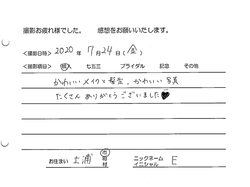 撮影お疲れ様でした。 感想をお願いいたします。
<撮影日時> 2020年 7月 24日 (金)
<撮影項目> 成人 七五三 ブライダル 記念 その他
かわいいメイクと髪型、かわいい写真
たくさんありがとうございました♥
お住まい 土浦 市 町 村 ニックネーム イニシャル E